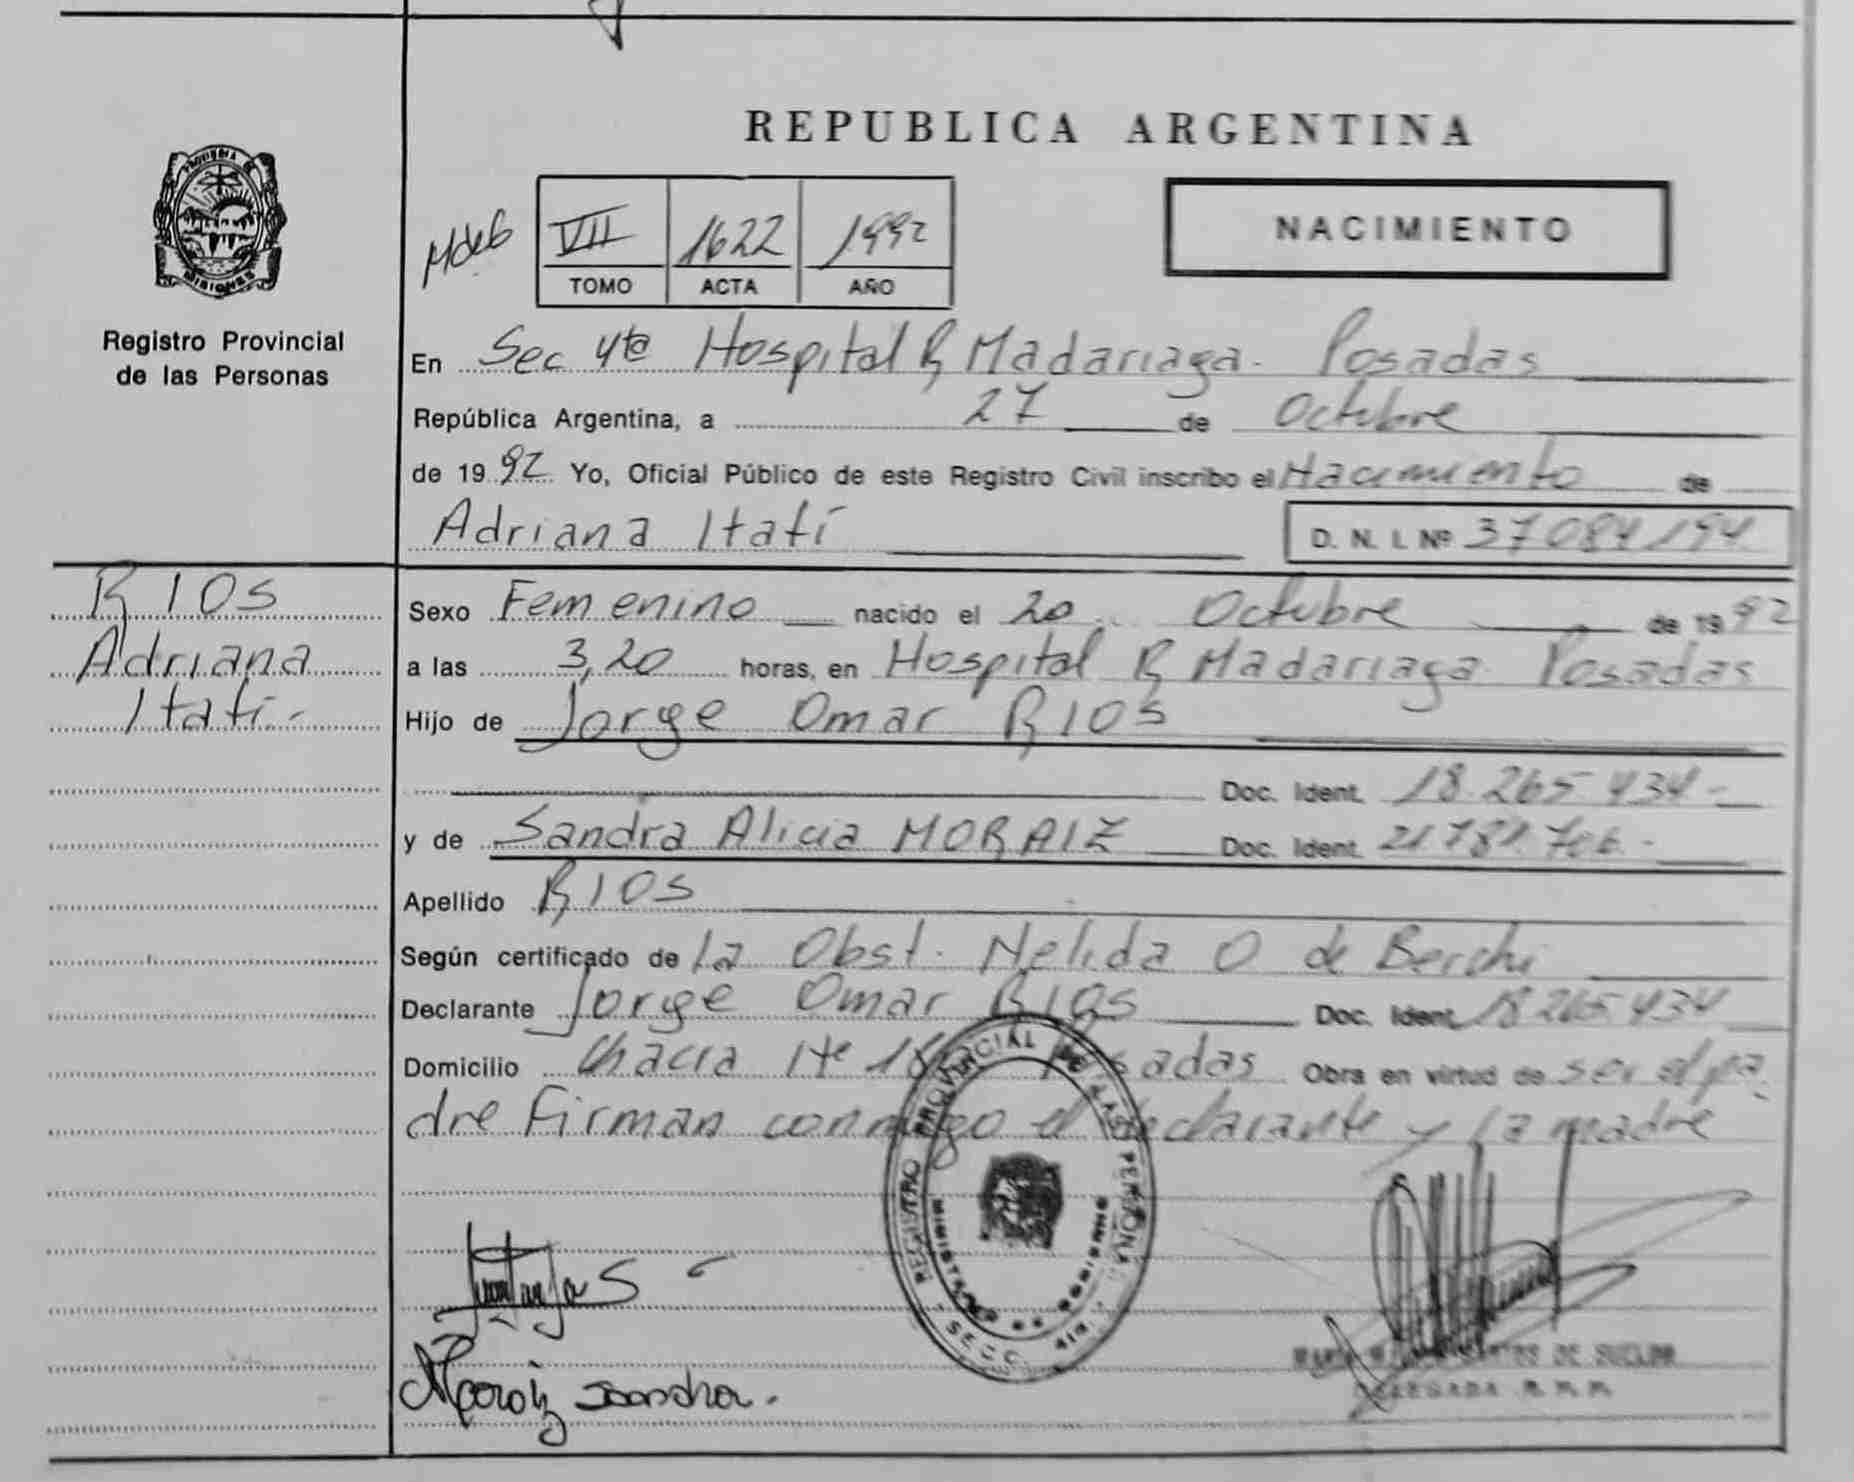 REPUBLICA ARGENTINA
PROVINCIA DE
MISIONES
Registro Provincial
de las Personas
VII 1622 1992
TOMO ACTA AÑO
NACIMIENTO
En Sec 4ta Hospital R Madariaga. Posadas
República Argentina, a 27 de Octubre
de 1992 Yo, Oficial Público de este Registro Civil inscribo el Nacimiento de
Adriana Itatí D. N. I. Nº 37084194
RIOS
Adriana
Itatí-
Sexo Femenino nacido el 20 Octubre de 1992
a las 3,20 horas, en Hospital R Madariaga Posadas
Hijo de Jorge Omar RIOS
Doc. Ident. 18.265 434-
y de Sandra Alicia MORAIZ Doc. Ident. 21.781.
Apellido RIOS
Según certificado de la Obst. Nelida O de Berchi
Declarante Jorge Omar RIOS Doc. Ident. 18265 434
Domicilio Chacra Nº Posadas Obra en virtud de ser el pa
dre Firman conmigo el declarante y la madre
REGISTRO PROVINCIAL DE LAS PERSONAS
MINISTERIO DE GOBIERNO
SECC.
Moraiz Sandra.
DE SUELDO
DELEGADA